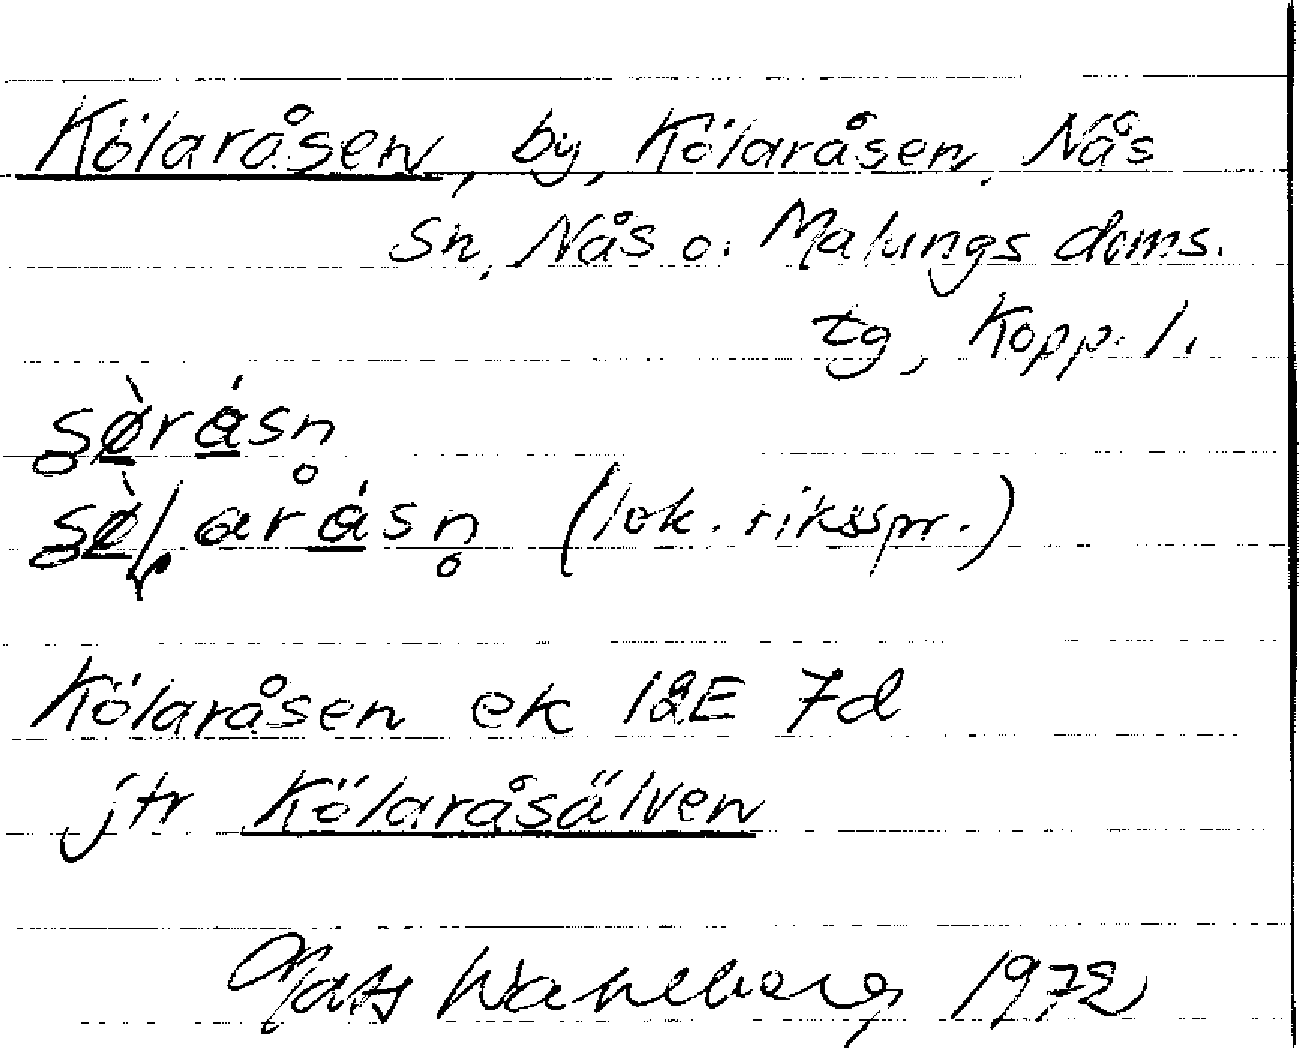 Kölaråsen, by, Kölaråsen, Nås
sn, Nås o. Malungs doms.
tg, Kopp. l.
(lok. riksspr.)
Kölaråsen ek 12E 7d
jfr Kölaråsälven
Mats Wahlberg 1972